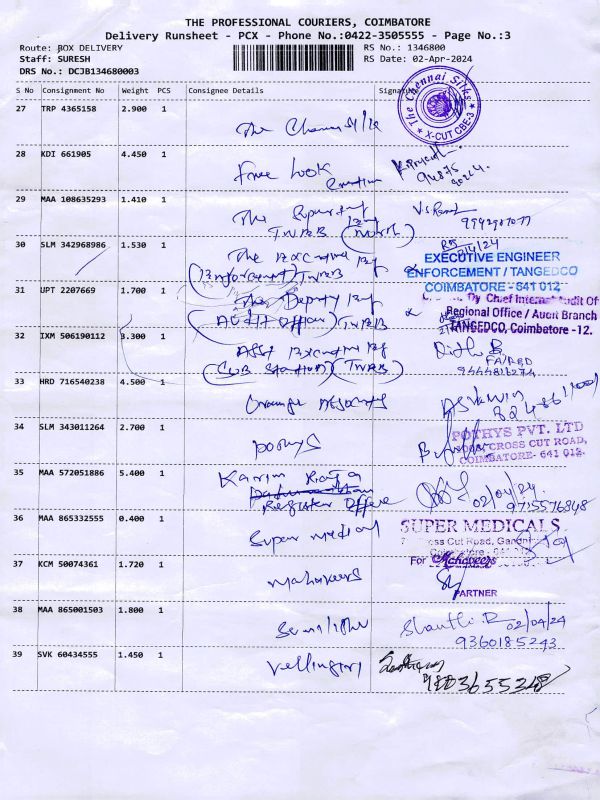 THE PROFESSIONAL COURIERS, COIMBATORE
Delivery Runsheet - PCX - Phone No.:0422-3505555 - Page No.:3
Route: BOX DELIVERY RS No.: 1346800
Staff: SURESH RS Date: 02-Apr-2024
DRS No.: DCJB134680003
S No Consignment No Weight PCS Consignee Details Signature
27 TRP 4365158 2.900 1
The Chennai Silks
The Chennai Silks
★ X-CUT CBE-3 ★
28 KDI 661905 4.450 1
Free Look
94875
29 MAA 108635293 1.410 1
The
TNEB (North)
9942987077
30 SLM 342968986 1.530 1
The Executive Eng
(Enforcement) TNEB
EXECUTIVE ENGINEER
ENFORCEMENT / TANGEDCO
COIMBATORE - 641 012
31 UPT 2207669 1.700 1
The Deputy Eng
(Audit Officer) TNEB
Dy Chief Internal Audit Of
Regional Office / Audit Branch
TANGEDCO, Coimbatore -12.
32 IXM 506190112 3.300 1
Asst Executive Eng
(Sub Station) (TNEB)
33 HRD 716540238 4.500 1
Orange Associates
ASVAWIN
34 SLM 343011264 2.700 1
Pothys
POTHYS PVT. LTD
CROSS CUT ROAD,
COIMBATORE- 641 012.
35 MAA 572051886 5.400 1
Register Office
02/04/24
9715576848
36 MAA 865332555 0.400 1
Super medical
SUPER MEDICALS
Cross Cut Road,
37 KCM 50074361 1.720 1
Mahaveers
For Mahaveers
PARTNER
38 MAA 865001503 1.800 1
Shanthi.R 02/04/24
9360185243
39 SVK 60434555 1.450 1
Vellingiri
9003655348